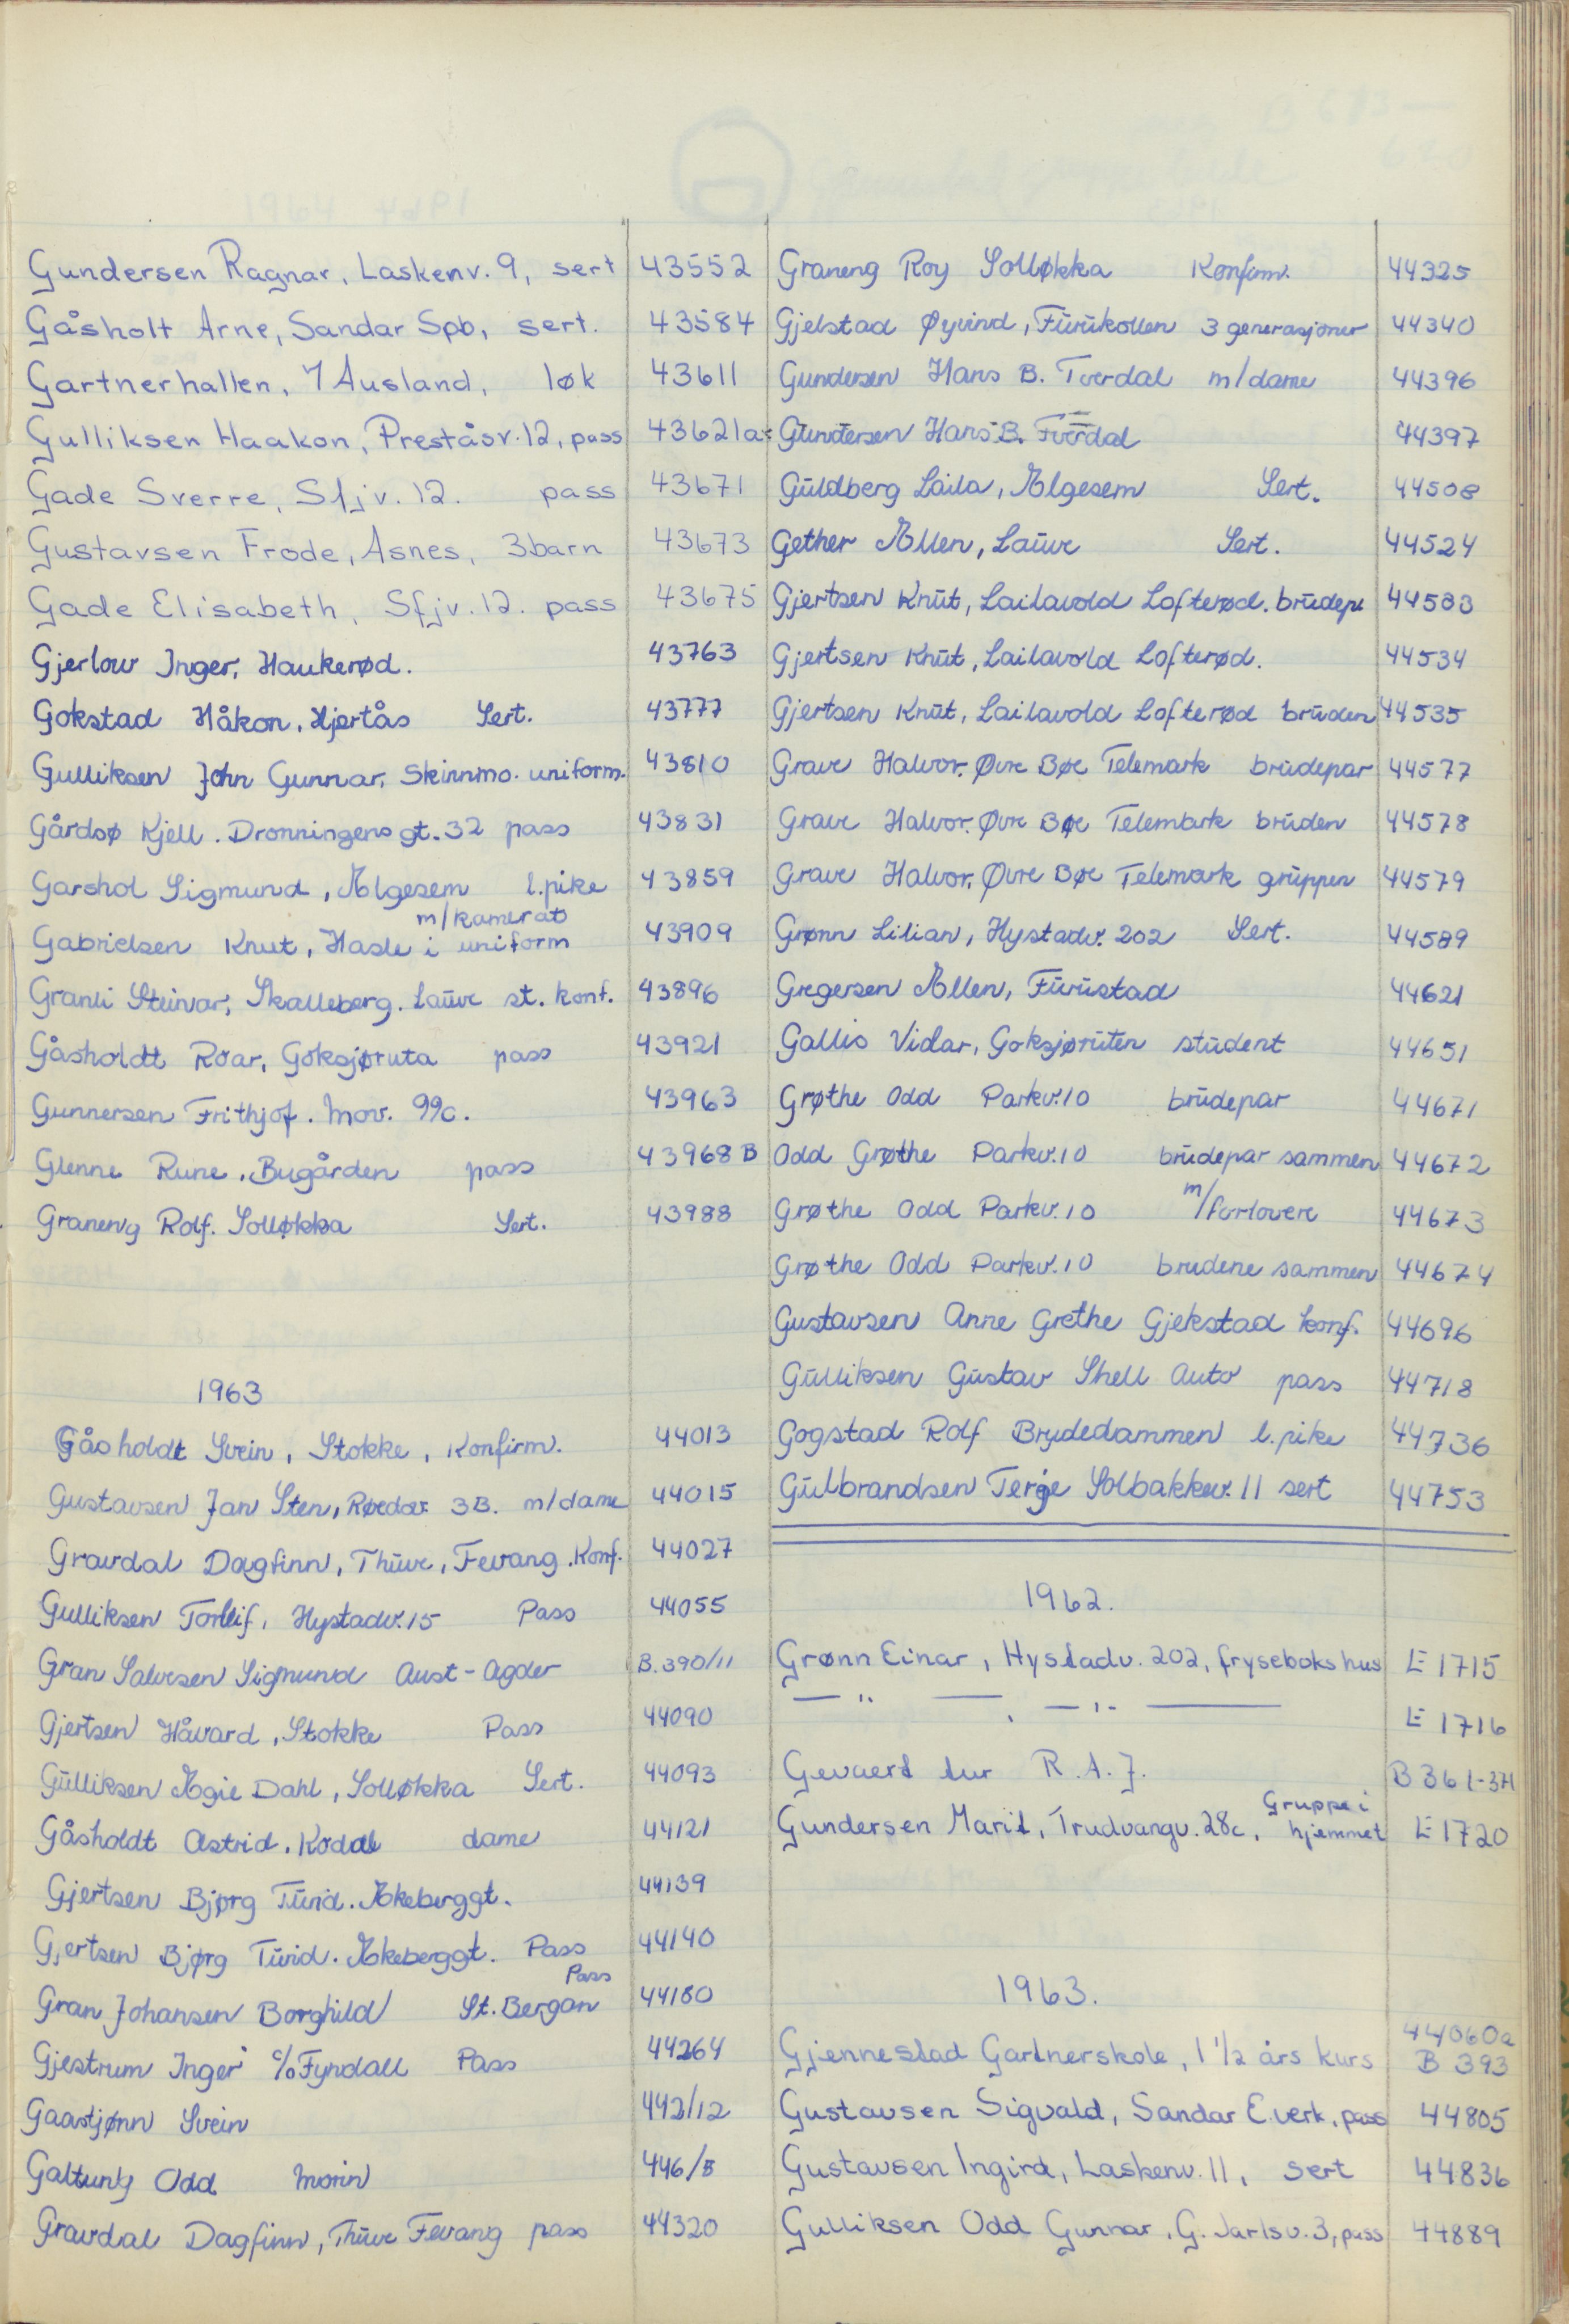 Gundersen Ragnar, Laskenv. 9, sert 43552
Gåsholt Arne, Sandar Spb, sert. 43584
Gartnerhallen, Ausland, løk 43611
Gulliksen Haakon, Preståsv. 12, pass 43621a
Gade Sverre, Sfjv. 12. pass 43671
Gustavsen Frode, Åsnes, 3 barn 43673
Gade Elisabeth, Sfjv. 12. pass 43675
Gjerlow Inger, Haukerød. 43763
Gokstad Håkon, Hjertås Sert. 43777
Gulliksen John Gunnar, Skinnmo. uniform. 43810
Gårdsø Kjell. Dronningens gt. 32 pass 43831
Garshol Sigmund, Ælgesem l.pike 43859
m/kamerat
Gabrielsen Knut, Hasle i uniform 43909
Granli Steinar, Skalleberg. Lauve st. konf. 43896
Gåsholdt Roar, Goksjøruta pass 43921
Gunnersen Frithjof. Mov. 99c. 43963
Glenne Rune. Bugården pass 43968 B
Graneng Rolf. Solløkka Sert. 43988
1963
Gåsholdt Svein, Stokke, Konfirm. 44013
Gustavsen Jan Sten, 3B. m/dame 44015
Gravdal Dagfinn, Thuve, Fevang. Konf. 44027
Gulliksen Torleif, Hystadv. 15 Pass 44055
Gran Salvesen Sigmund Aust-Agder B.390/11
Gjertsen Håvard, Stokke Pass 44090
Gulliksen Aagie Dahl, Solløkka Sert. 44093
Gåsholdt Astrid. Kodal dame 44121
Gjertsen Bjørg Turid. Ækeberggt. 44139
Gjertsen Bjørg Turid. Ækeberggt. Pass 44140
Pass
Gran Johansen Borghild St. Bergan 44180
Gjestrum Inger c/o Fyndall Pass 44264
Gaastjønn Svein 442/12
Galtung Odd Morin 446/5
Gravdal Dagfinn, Thuve Fevang pass 44320
Graneng Roy Solløkka Konfirm. 44325
Gjelstad Øyvind, Furukollen 3 generasjoner 44340
Gundersen Hans B. Tverdal m/dame 44396
Gundersen Hans B. Tverdal 44397
Guldberg Laila, Ælgesem Sert. 44508
Gether Ellen, Lauve Sert. 44524
Gjertsen Knut, Lailavold Lofterød. brudep. 44533
Gjertsen Knut, Lailavold Lofterød. 44534
Gjertsen Knut, Lailavold Lofterød bruden 44535
Grave Halvor. Øvre Bøe Telemark brudepar 44577
Grave Halvor. Øvre Bøe Telemark bruden 44578
Grave Halvor. Øvre Bøe Telemark gruppen 44579
Grønn Lilian, Hystadv. 202 Sert. 44589
Gregersen Ellen, Furustad 44621
Gallis Vidar, Goksjøruten student 44651
Grøthe Odd Parkv. 10 brudepar 44671
Odd Grøthe Parkv. 10 brudepar sammen 44672
Grøthe Odd Parkv. 10 m/forlovere 44673
Grøthe Odd Parkv. 10 brudene sammen 44674
Gustavsen Anne Grethe Gjekstad konf. 44696
Gulliksen Gustav Shell Auto pass 44718
Gogstad Rolf Brydedammen l.pike 44736
Gulbrandsen Terje Solbakkev. 11 sert 44753
1962.
Grønn Einar, Hystadv. 202, fryseboks hus E 1715
— " — , — " — E 1716
Gevaert tur R.A.J. B 361-371
Gruppe i
Gundersen Marit, Trudvangv. 28c, hjemmet E 1720
1963.
44060a
Gjennestad Gartnerskole, 1 1/2 års kurs B 393
Gustavsen Sigvald, Sandar E.verk, pass 44805
Gustavsen Ingird, Laskenv. 11, sert 44836
Gulliksen Odd Gunnar, G. Jarlsv. 3, pass 44889